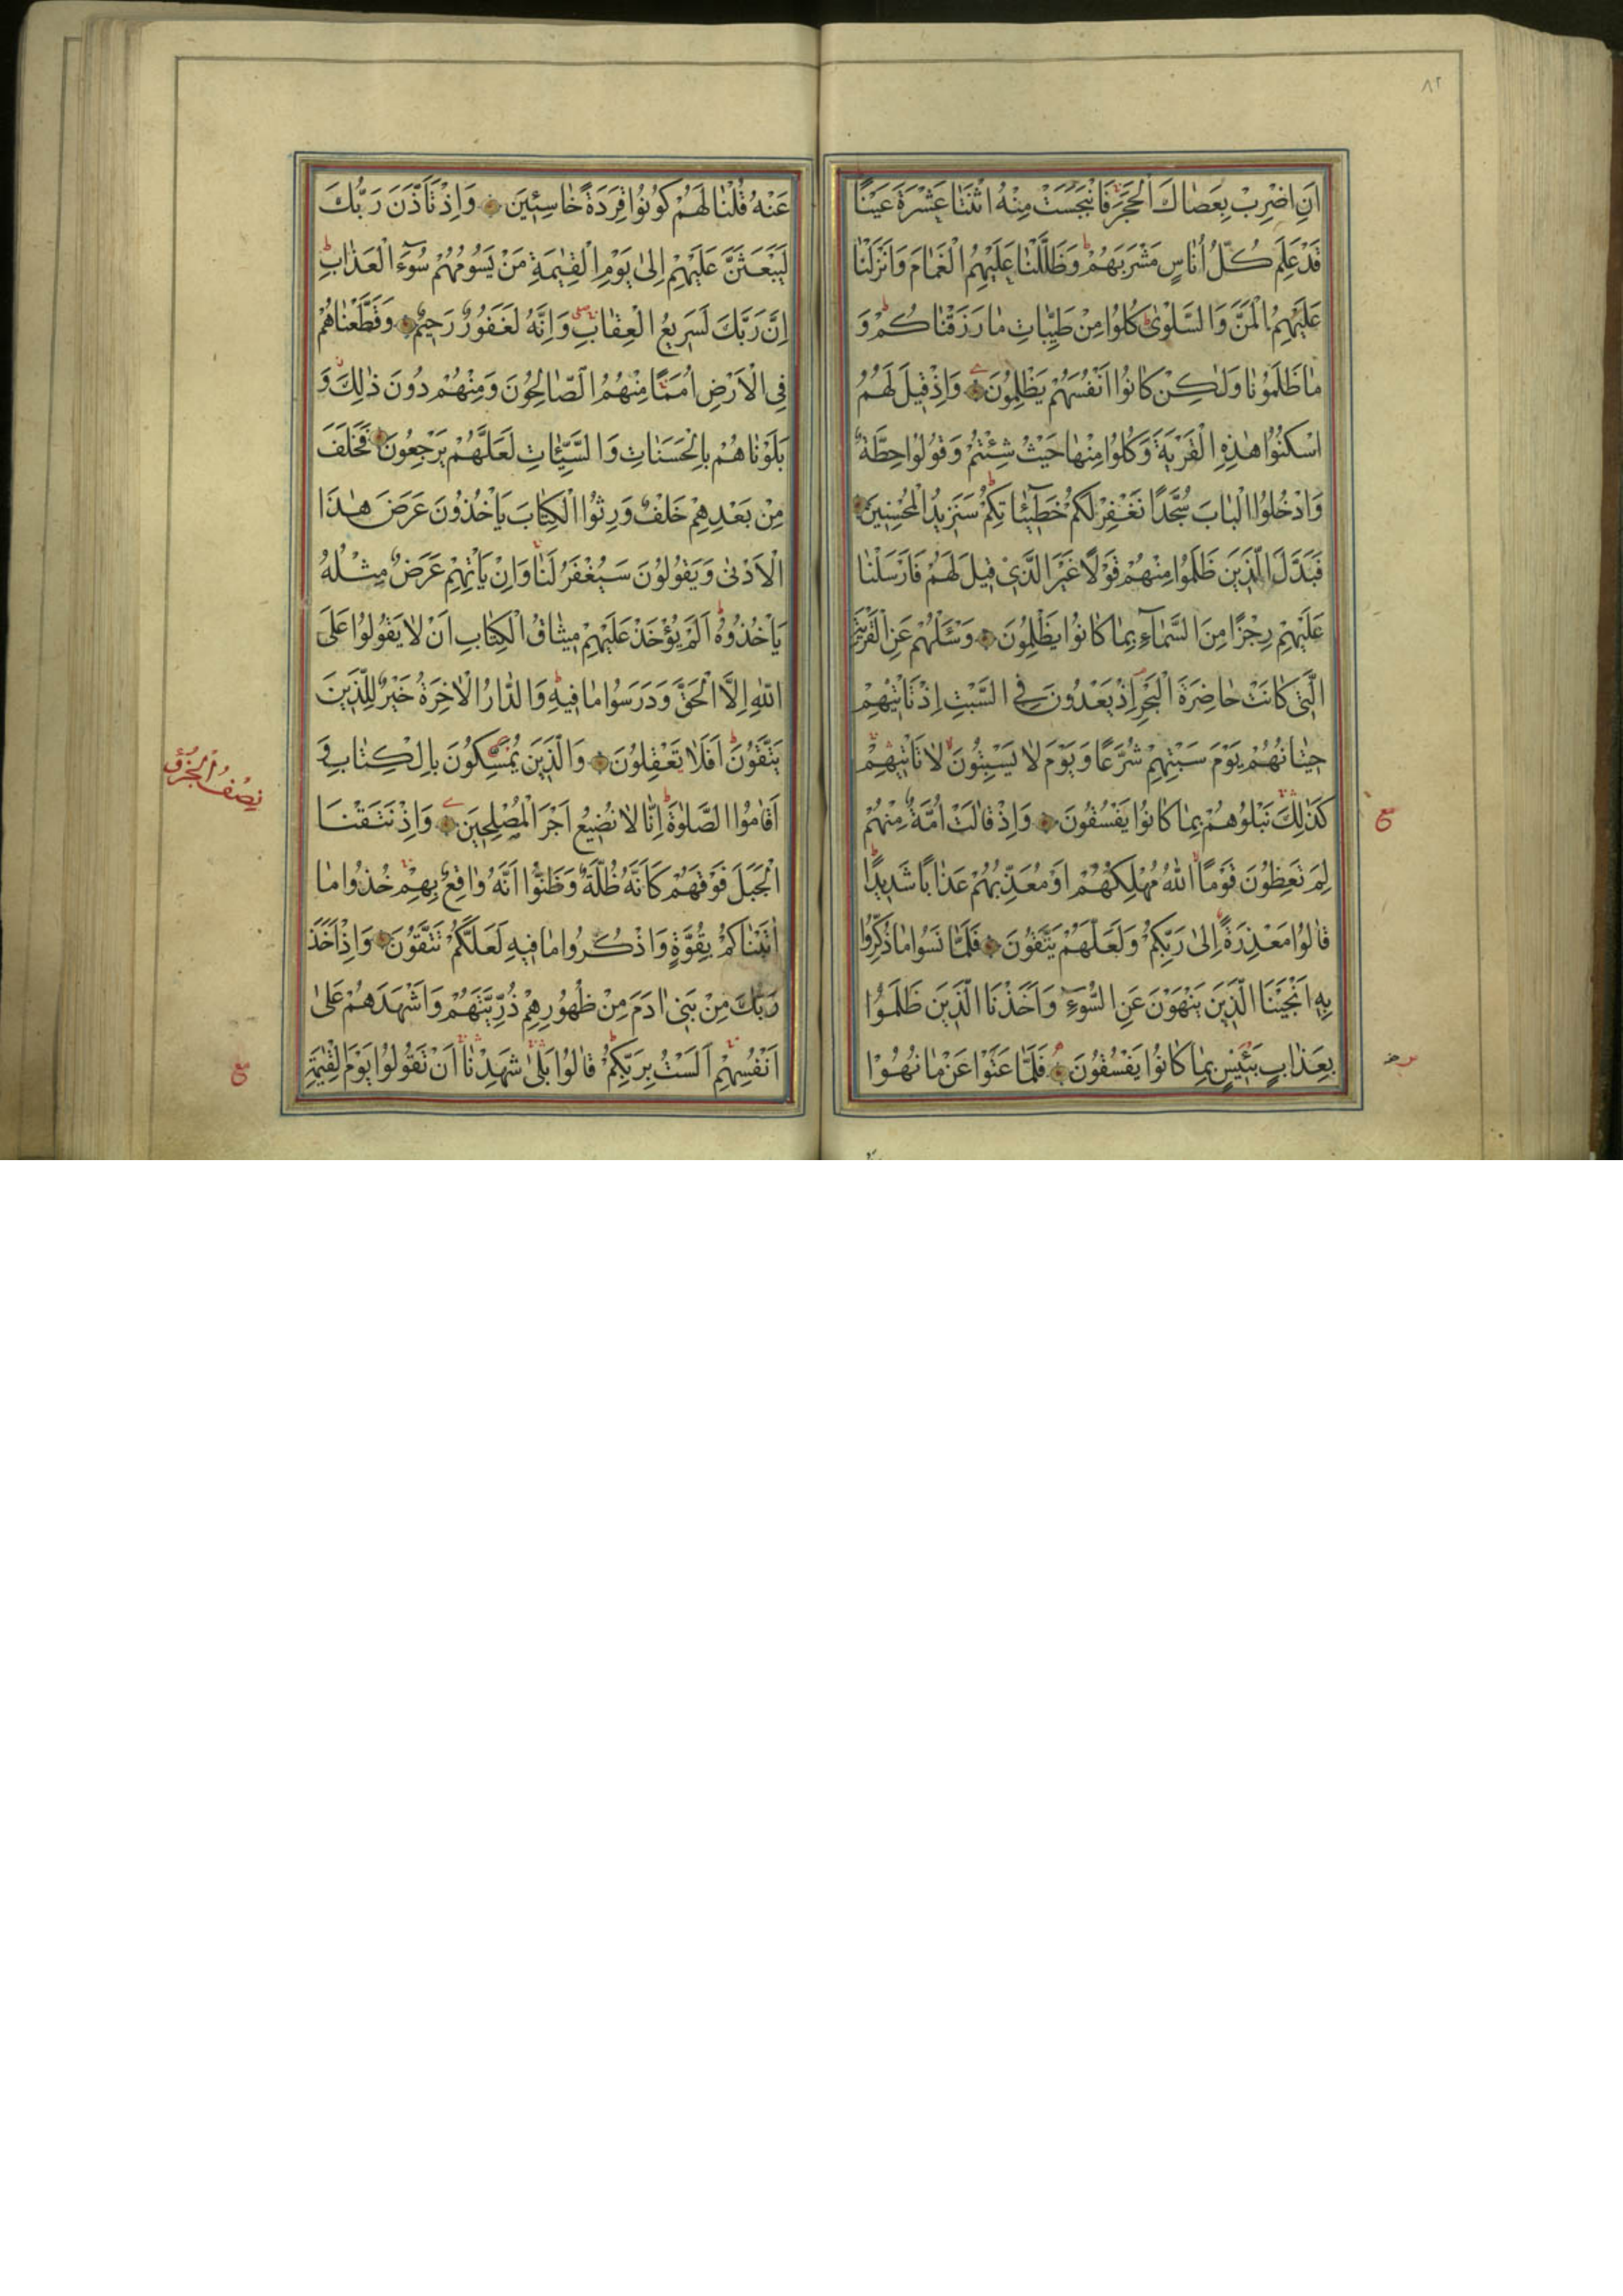 ٨٢
اَنِ اضْرِبْ بِعَصَاكَ الْحَجَرَ فَانْبَجَسَتْ مِنْهُ اثْنَتَا عَشْرَةَ عَيْنًا
قَدْ عَلِمَ كُلُّ اُنَاسٍ مَشْرَبَهُمْ وَظَلَّلْنَا عَلَيْهِمُ الْغَمَامَ وَاَنْزَلْنَا
عَلَيْهِمُ الْمَنَّ وَالسَّلْوٰى كُلُوا مِنْ طَيِّبَاتِ مَا رَزَقْنَاكُمْ وَ
مَا ظَلَمُونَا وَلٰكِنْ كَانُوا اَنْفُسَهُمْ يَظْلِمُونَ وَاِذْ قِيلَ لَهُمُ
اسْكُنُوا هٰذِهِ الْقَرْيَةَ وَكُلُوا مِنْهَا حَيْثُ شِئْتُمْ وَقُولُوا حِطَّةٌ
وَادْخُلُوا الْبَابَ سُجَّدًا نَغْفِرْ لَكُمْ خَطِيٓئَاتِكُمْ سَنَزِيدُ الْمُحْسِنِينَ
فَبَدَّلَ الَّذِينَ ظَلَمُوا مِنْهُمْ قَوْلًا غَيْرَ الَّذِي قِيلَ لَهُمْ فَاَرْسَلْنَا
عَلَيْهِمْ رِجْزًا مِنَ السَّمَآءِ بِمَا كَانُوا يَظْلِمُونَ وَسْئَلْهُمْ عَنِ الْقَرْيَةِ
الَّتِي كَانَتْ حَاضِرَةَ الْبَحْرِ اِذْ يَعْدُونَ فِي السَّبْتِ اِذْ تَأْتِيهِمْ
حِيتَانُهُمْ يَوْمَ سَبْتِهِمْ شُرَّعًا وَيَوْمَ لَا يَسْبِتُونَ لَا تَأْتِيهِمْ
كَذٰلِكَ نَبْلُوهُمْ بِمَا كَانُوا يَفْسُقُونَ وَاِذْ قَالَتْ اُمَّةٌ مِنْهُمْ
لِمَ تَعِظُونَ قَوْمًا اللّٰهُ مُهْلِكُهُمْ اَوْ مُعَذِّبُهُمْ عَذَابًا شَدِيدًا
قَالُوا مَعْذِرَةً اِلٰى رَبِّكُمْ وَلَعَلَّهُمْ يَتَّقُونَ فَلَمَّا نَسُوا مَا ذُكِّرُوا
بِهِ اَنْجَيْنَا الَّذِينَ يَنْهَوْنَ عَنِ السُّوٓءِ وَاَخَذْنَا الَّذِينَ ظَلَمُوا
بِعَذَابٍ بَئِيسٍ بِمَا كَانُوا يَفْسُقُونَ فَلَمَّا عَتَوْا عَنْ مَا نُهُوْا
ع
عَنْهُ قُلْنَا لَهُمْ كُونُوا قِرَدَةً خَاسِئِينَ وَاِذْ تَاَذَّنَ رَبُّكَ
لَيَبْعَثَنَّ عَلَيْهِمْ اِلٰى يَوْمِ الْقِيٰمَةِ مَنْ يَسُومُهُمْ سُوٓءَ الْعَذَابِ
اِنَّ رَبَّكَ لَسَرِيعُ الْعِقَابِ وَاِنَّهُ لَغَفُورٌ رَحِيمٌ وَقَطَّعْنَاهُمْ
فِي الْاَرْضِ اُمَمًا مِنْهُمُ الصَّالِحُونَ وَمِنْهُمْ دُونَ ذٰلِكَ وَ
بَلَوْنَاهُمْ بِالْحَسَنَاتِ وَالسَّيِّئَاتِ لَعَلَّهُمْ يَرْجِعُونَ فَخَلَفَ
مِنْ بَعْدِهِمْ خَلْفٌ وَرِثُوا الْكِتَابَ يَأْخُذُونَ عَرَضَ هٰذَا
الْاَدْنٰى وَيَقُولُونَ سَيُغْفَرُ لَنَا وَاِنْ يَأْتِهِمْ عَرَضٌ مِثْلُهُ
يَأْخُذُوهُ اَلَمْ يُؤْخَذْ عَلَيْهِمْ مِيثَاقُ الْكِتَابِ اَنْ لَا يَقُولُوا عَلَى
اللّٰهِ اِلَّا الْحَقَّ وَدَرَسُوا مَا فِيهِ وَالدَّارُ الْاٰخِرَةُ خَيْرٌ لِلَّذِينَ
يَتَّقُونَ اَفَلَا تَعْقِلُونَ وَالَّذِينَ يُمَسِّكُونَ بِالْكِتَابِ وَ
نِصْفُ الْجُزْءِ
اَقَامُوا الصَّلٰوةَ اِنَّا لَا نُضِيعُ اَجْرَ الْمُصْلِحِينَ وَاِذْ نَتَقْنَا
الْجَبَلَ فَوْقَهُمْ كَاَنَّهُ ظُلَّةٌ وَظَنُّوا اَنَّهُ وَاقِعٌ بِهِمْ خُذُوا مَا
اٰتَيْنَاكُمْ بِقُوَّةٍ وَاذْكُرُوا مَا فِيهِ لَعَلَّكُمْ تَتَّقُونَ وَاِذْ اَخَذَ
رَبُّكَ مِنْ بَنِي اٰدَمَ مِنْ ظُهُورِهِمْ ذُرِّيَّتَهُمْ وَاَشْهَدَهُمْ عَلٰى
اَنْفُسِهِمْ اَلَسْتُ بِرَبِّكُمْ قَالُوا بَلٰى شَهِدْنَا اَنْ تَقُولُوا يَوْمَ الْقِيٰمَةِ
ع